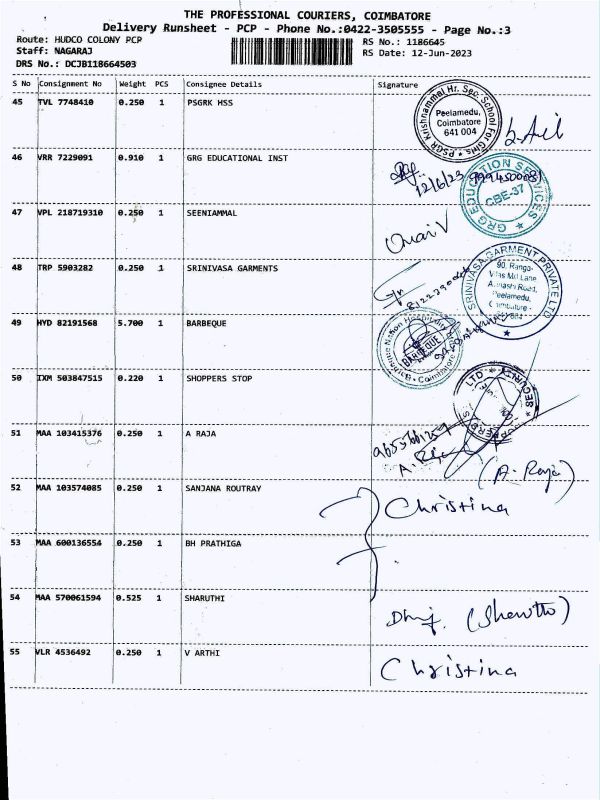 THE PROFESSIONAL COURIERS, COIMBATORE
Delivery Runsheet - PCP - Phone No.:0422-3505555 - Page No.:3
Route: HUDCO COLONY PCP
RS No.: 1186645
Staff: NAGARAJ
RS Date: 12-Jun-2023
DRS No.: DCJB118664503
S No Consignment No Weight PCS Consignee Details Signature
45 TVL 7748410 0.250 1 PSGRK HSS
PSGR Krishnammal Hr. Sec. School For Girls
Peelamedu,
Coimbatore
641 004
46 VRR 7229091 0.910 1 GRG EDUCATIONAL INST
12/6/23
GRG EDUCATION SERVICES
CBE-37
47 VPL 218719310 0.250 1 SEENIAMMAL
48 TRP 5903282 0.250 1 SRINIVASA GARMENTS
SRINIVASA GARMENT PRIVATE LTD
90, Ranga-
Vilas Mill Lane
Avinashi Road,
Peelamedu,
Coimbatore -
49 HYD 82191568 5.700 1 BARBEQUE
Nation Hospitality
BARBEQUE
Coimbatore
50 IXM 503847515 0.220 1 SHOPPERS STOP
51 MAA 103415376 0.250 1 A RAJA
A. Raja
(A. Raja)
52 MAA 103574085 0.250 1 SANJANA ROUTRAY
Christina
53 MAA 600136554 0.250 1 BH PRATHIGA
54 MAA 570061594 0.525 1 SHARUTHI
55 VLR 4536492 0.250 1 V ARTHI
Christina